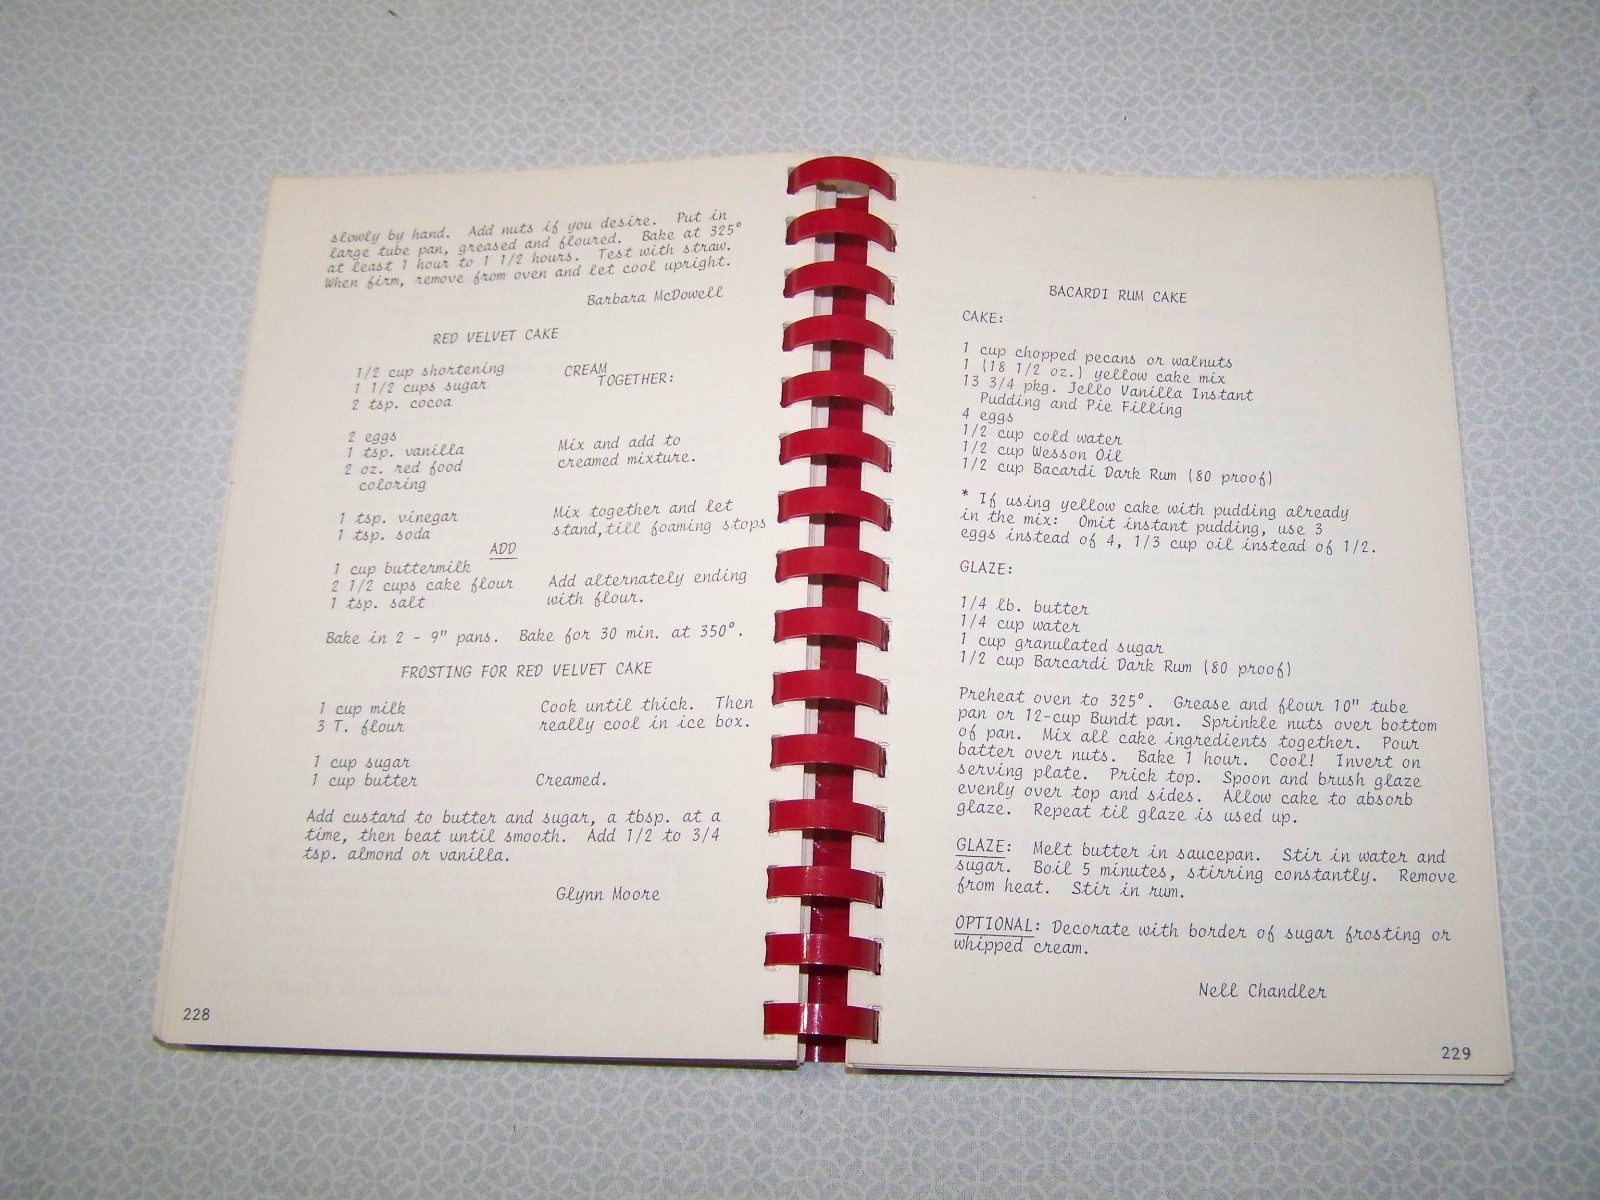 slowly by hand. Add nuts if you desire. Put in
large tube pan, greased and floured. Bake at 325°
at least 1 hour to 1 1/2 hours. Test with straw.
When firm, remove from oven and let cool upright.
Barbara McDowell
RED VELVET CAKE
1/2 cup shortening CREAM
1 1/2 cups sugar TOGETHER:
2 tsp. cocoa
2 eggs
1 tsp. vanilla Mix and add to
2 oz. red food creamed mixture.
coloring
1 tsp. vinegar Mix together and let
1 tsp. soda stand,till foaming stops
ADD
1 cup buttermilk
2 1/2 cups cake flour Add alternately ending
1 tsp. salt with flour.
Bake in 2 - 9" pans. Bake for 30 min. at 350°.
FROSTING FOR RED VELVET CAKE
1 cup milk Cook until thick. Then
3 T. flour really cool in ice box.
1 cup sugar
1 cup butter Creamed.
Add custard to butter and sugar, a tbsp. at a
time, then beat until smooth. Add 1/2 to 3/4
tsp. almond or vanilla.
Glynn Moore
228
BACARDI RUM CAKE
CAKE:
1 cup chopped pecans or walnuts
1 (18 1/2 oz.) yellow cake mix
13 3/4 pkg. Jello Vanilla Instant
Pudding and Pie Filling
4 eggs
1/2 cup cold water
1/2 cup Wesson Oil
1/2 cup Bacardi Dark Rum (80 proof)
* If using yellow cake with pudding already
in the mix: Omit instant pudding, use 3
eggs instead of 4, 1/3 cup oil instead of 1/2.
GLAZE:
1/4 lb. butter
1/4 cup water
1 cup granulated sugar
1/2 cup Barcardi Dark Rum (80 proof)
Preheat oven to 325°. Grease and flour 10" tube
pan or 12-cup Bundt pan. Sprinkle nuts over bottom
of pan. Mix all cake ingredients together. Pour
batter over nuts. Bake 1 hour. Cool! Invert on
serving plate. Prick top. Spoon and brush glaze
evenly over top and sides. Allow cake to absorb
glaze. Repeat til glaze is used up.
GLAZE: Melt butter in saucepan. Stir in water and
sugar. Boil 5 minutes, stirring constantly. Remove
from heat. Stir in rum.
OPTIONAL: Decorate with border of sugar frosting or
whipped cream.
Nell Chandler
229